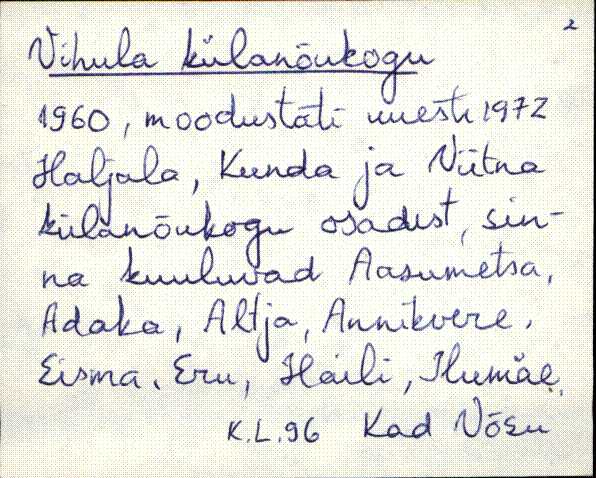 2
Vihula külanõukogu
1960, moodustati uuesti 1972
Haljala, Kunda ja Viitna
külanõukogu osadest, sin-
na kuuluvad Aasumetsa,
Adaka, Altja, Annikvere,
Eisma, Eru, Haili, Ilumäe,
K.L.96 Kad Võsu